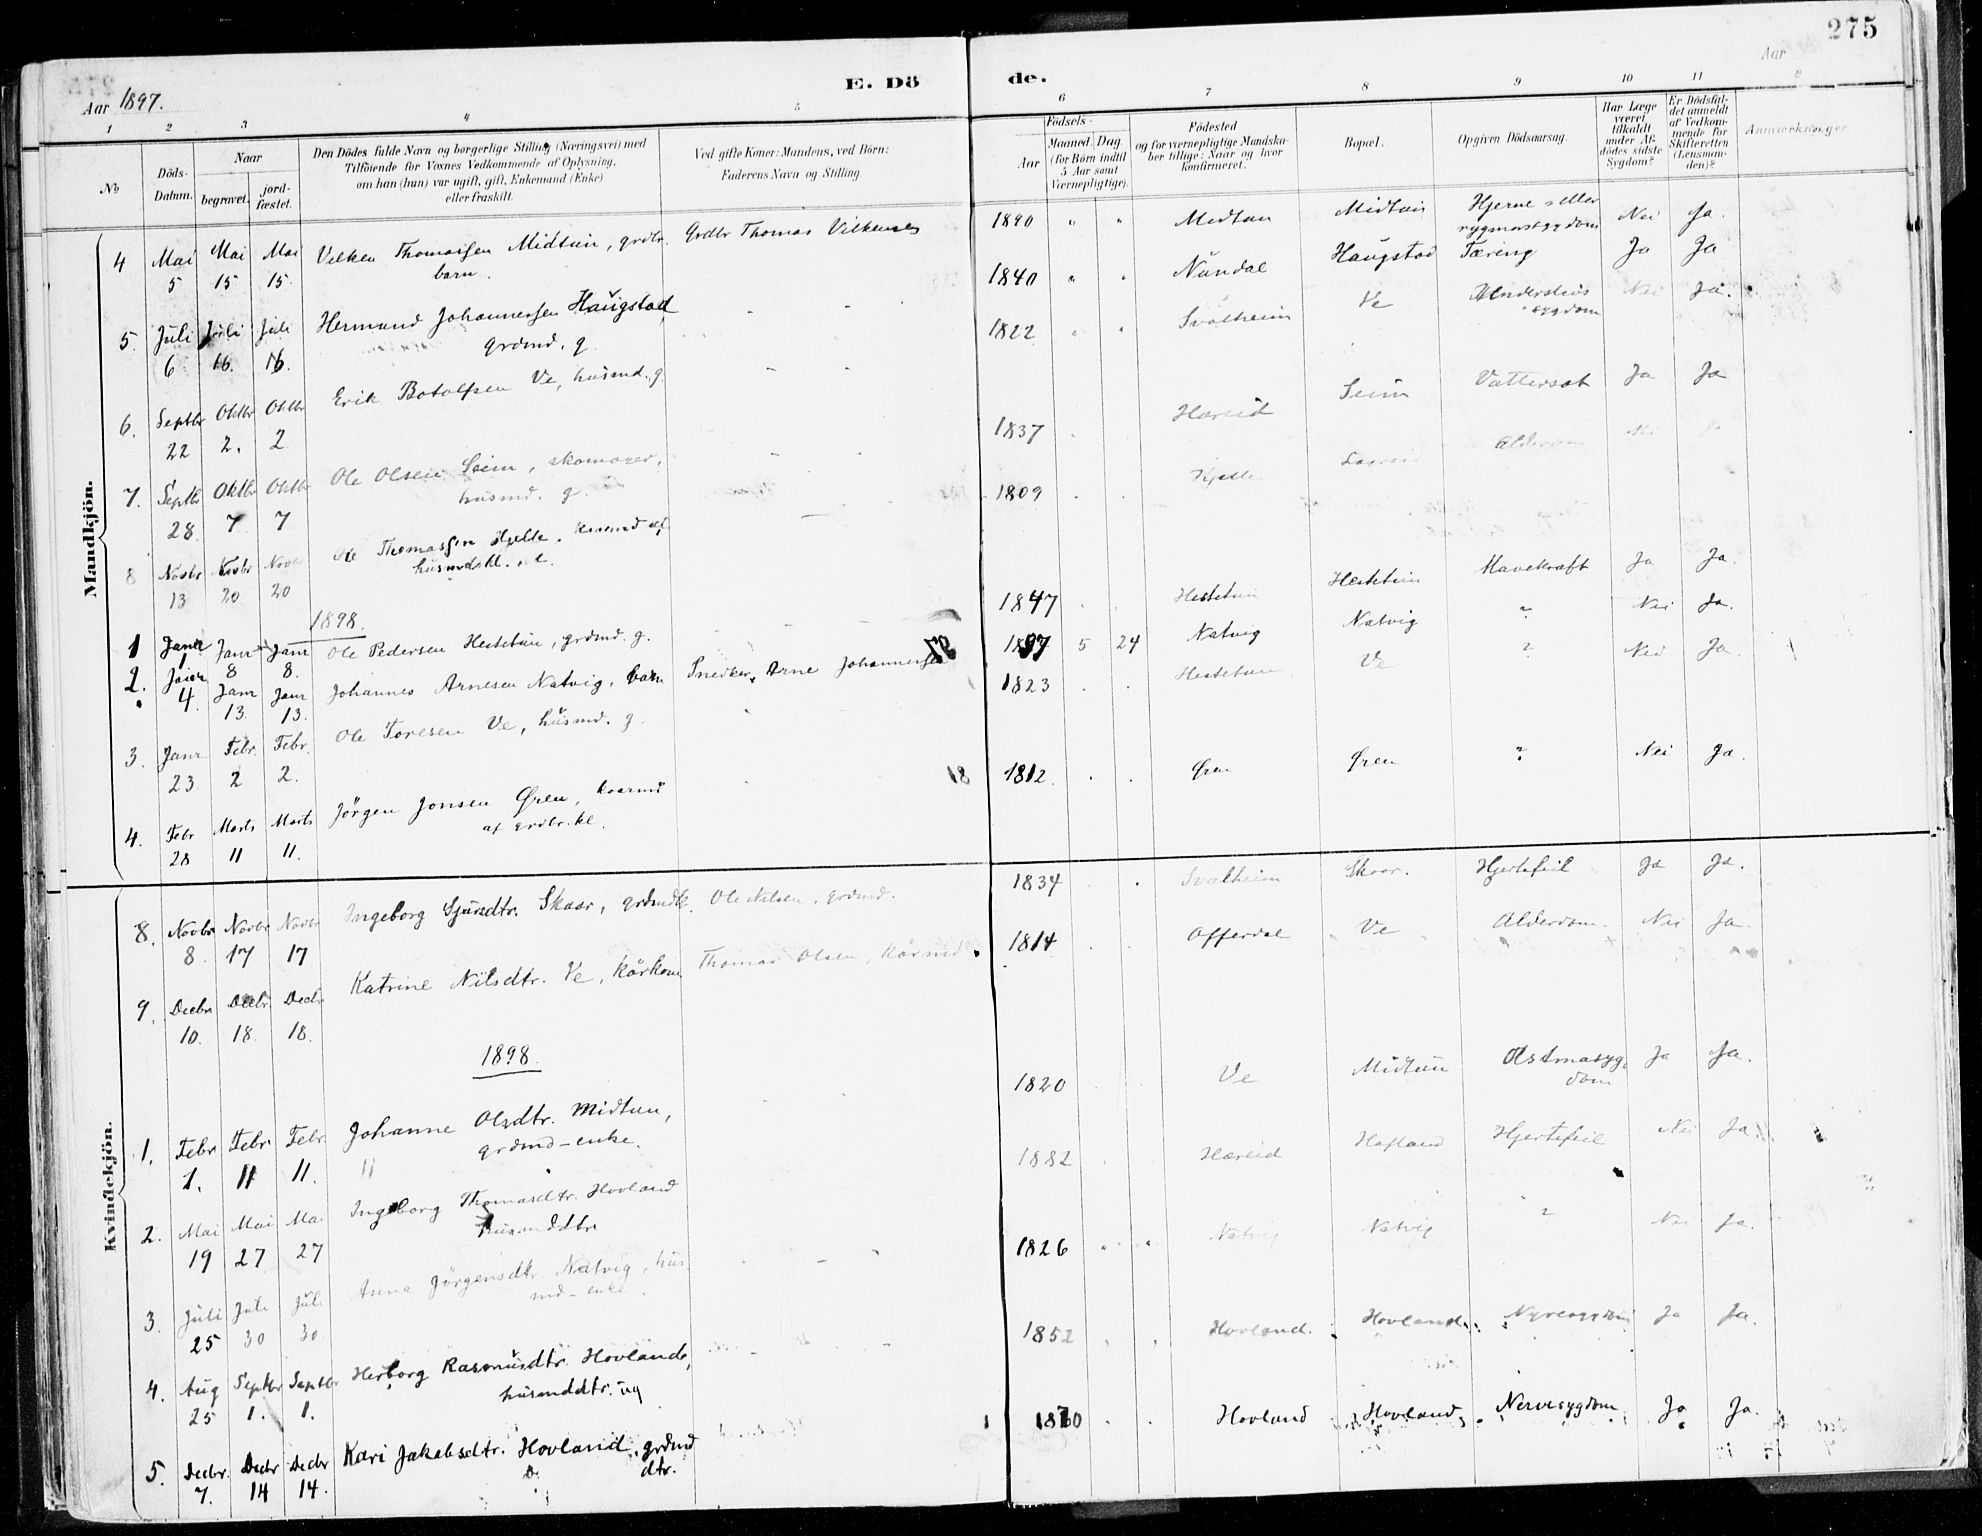 275
Aar 1897.
E. Dö
de.
Aar
1 2 3 4 5 6 7 8 9 10 11 12
No
Döds-
Datum.
Naar
begravet.
jord-
fæstet.
Den Dödes fulde Navn og borgerlige Stilling (Næringsvei) med
Tilföiende for Voxnes Vedkommende af Oplysning,
om han (hun) var ugift, gift, Enkemand (Enke)
eller fraskilt.
Ved gifte Koner: Mandens, ved Börn:
Faderens Navn og Stilling.
Födsels-
Aar
Maaned. Dag.
(for Börn indtil
5 Aar samt
Værnepligtige).
Födested
og for værnepligtige Mandska-
ber tillige: Naar og hvor
konfirmeret.
Bopæl.
Opgiven Dödsaarsag.
Har Læge
været
tilkaldt
under Af-
dödes sidste
Sygdom?
Er Dödsfal-
det anmeldt
af Vedkom-
mende for
Skifteretten
(Lensman-
den)?
Anmærkninger.
Mandkjön.
4 Mai Mai Mai Vilken Thomassen Midtun, grdbr. Grdbr Thomas Vilkensen 1890 " " Midtun Midtun Hjerne- eller Nei Ja.
5 15 15. barn. rygmarvsygdom
5. Juli Juli Juli Hermund Johannessen Haugstad 1840 " " Nundal Haugstad Tæring Ja Ja
6 16. 16. grdmd. g.
6. Septbr Oktbr Oktbr Erik Botolfsen Ve, husmd. g. 1822 " " Svalheim Ve Underlivs Nei Ja.
22 2. 2. sygdom
7. Septbr Oktbr Oktbr Ole Olsen Seim, skomager, 1837 Hæreid Seim Vattersot Ja Ja
28. 7 7 husmd. g.
8 Novbr Novbr Novbr Ole Thomassen Hjelle. 1809 Hjelle Alderdom Nei
13 20 20
1898.
1 Janr Janr Janr Ole Pedersen Hestetun, grdmd. g. 1847 Hestetun Hestetun Mavekræft Ja Ja.
1 8 8.
2. Janr Janr Janr Johannes Arnesen Natvig, barn Snedker Arne Johannessen 97 1897 5 24 Natvig Natvig ? Nei Ja.
4. 13. 13.
3. Janr Febr. Febr. Ole Toresen Ve, husmd. g. 1823 Hestetun Ve ? Nei Ja.
23. 2 2.
4. Febr Marts Marts Jörgen Jonsen Øren, kaarmd 18 1812. Øren Øren ? Nei Ja.
28 11 11. af grdbr.kl.
Kvindekjön.
8. Novbr Novbr Novbr Ingeborg Sjursdtr. Skaar, grdmdk. Ole Nilsen, grdmd. 1834 Svalheim Skaar. Hjertefeil Ja Ja.
8. 17 17
9. Decbr Decbr. Decbr Katrine Nilsdtr. Ve, kårkone Thomas Olsen, kårmd. 1814 Offerdal Ve Alderdom. Nei Ja.
10. 18. 18.
1898.
1. Febr Febr Febr. Johanne Olsdtr. Midtun, 1820 Ve Midtun Astmasyg- Ja Ja.
1. 11 11. grdmd-enke. dom
2. Mai Mai Mai Ingeborg Thomasdtr. Hovland 1882 Hæreid Hovland Hjertefeil Nei Ja.
19 27 27 husmdsdtr
3. Juli Juli Juli Anna Jörgensdtr. Natvig, hus- 1826 Natvig Natvig ? Nei Ja.
25 30 30 md-enke.
4. Aug Septbr Septbr Herborg Rasmusdtr. Hovland, 1852 Hovland. Hovland. Nyresygdom Ja Ja.
25 1. 1. husmddtr. ug
5. Decbr. Decbr Decbr Kari Jakobsdtr. Hovland, grdmd Hovland Hovland, Nervesygdom Ja Ja.
7. 14 14. dtr.